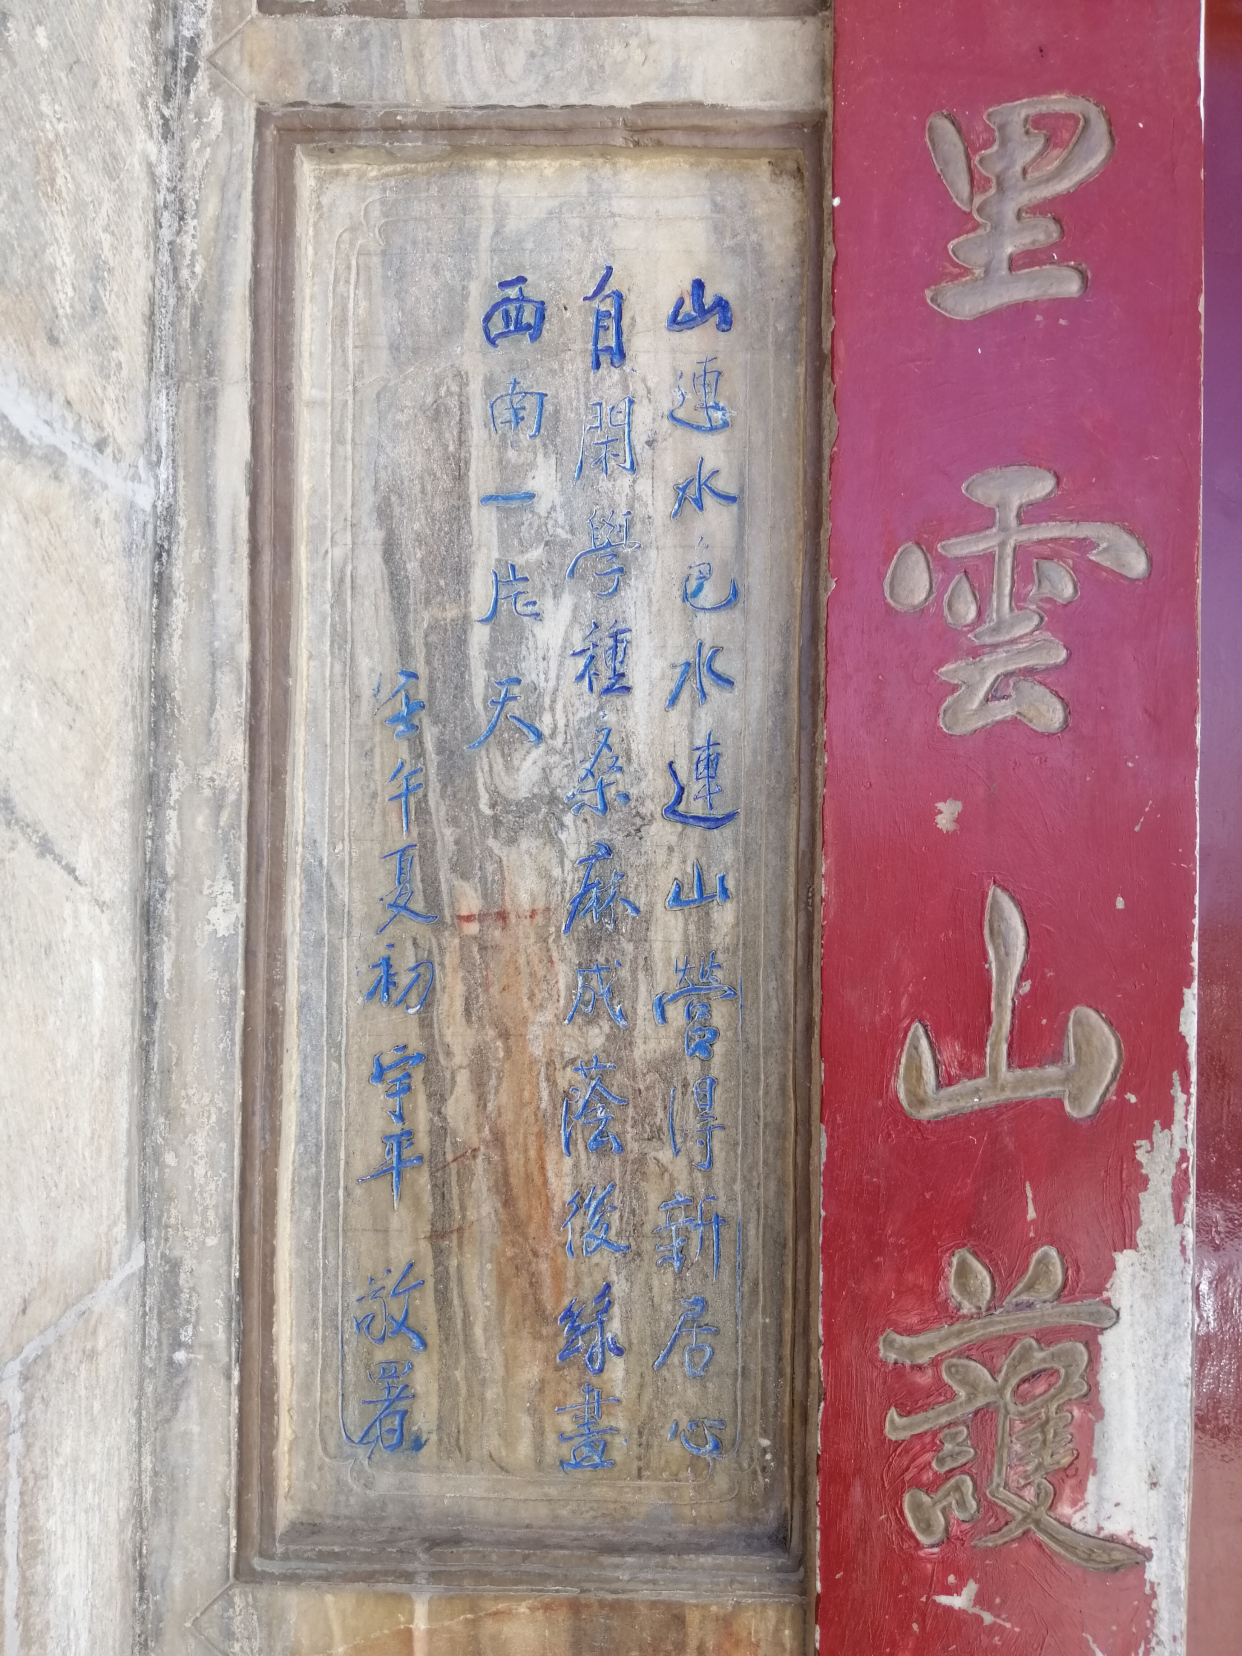 里雲山護
山連水色水連山營得新居心
自閑學種桑麻成蔭後綠畫
西南一片天
壬午夏初宇平敬署